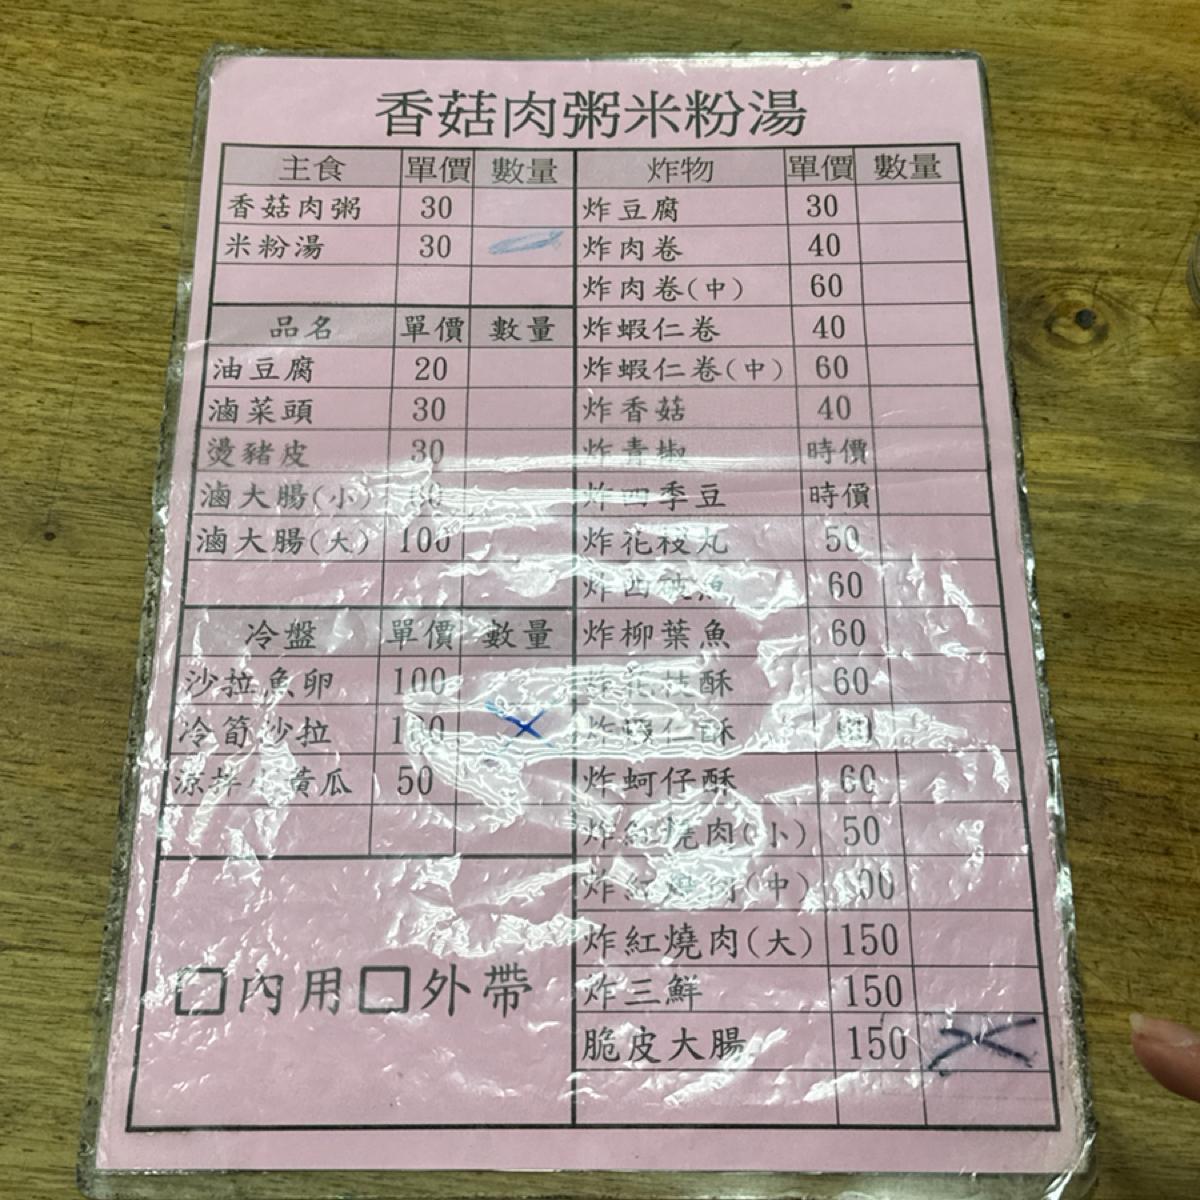 香菇肉粥米粉湯
主食 單價 數量
香菇肉粥 30
米粉湯 30
品名 單價 數量
油豆腐 20
滷菜頭 30
燙豬皮 30
滷大腸(小)
滷大腸(大) 100
冷盤 單價 數量
沙拉魚卵 100
冷筍沙拉
涼拌小黃瓜 50
內用 外帶
炸物 單價 數量
炸豆腐 30
炸肉卷 40
炸肉卷(中) 60
炸蝦仁卷 40
炸蝦仁卷(中) 60
炸香菇 40
炸青椒 時價
炸四季豆 時價
炸花枝丸 50
炸四破魚 60
炸柳葉魚 60
炸花枝酥 60
炸蝦仁酥
炸蚵仔酥 60
炸紅燒肉(小) 50
炸紅燒肉(中) 100
炸紅燒肉(大) 150
炸三鮮 150
脆皮大腸 150